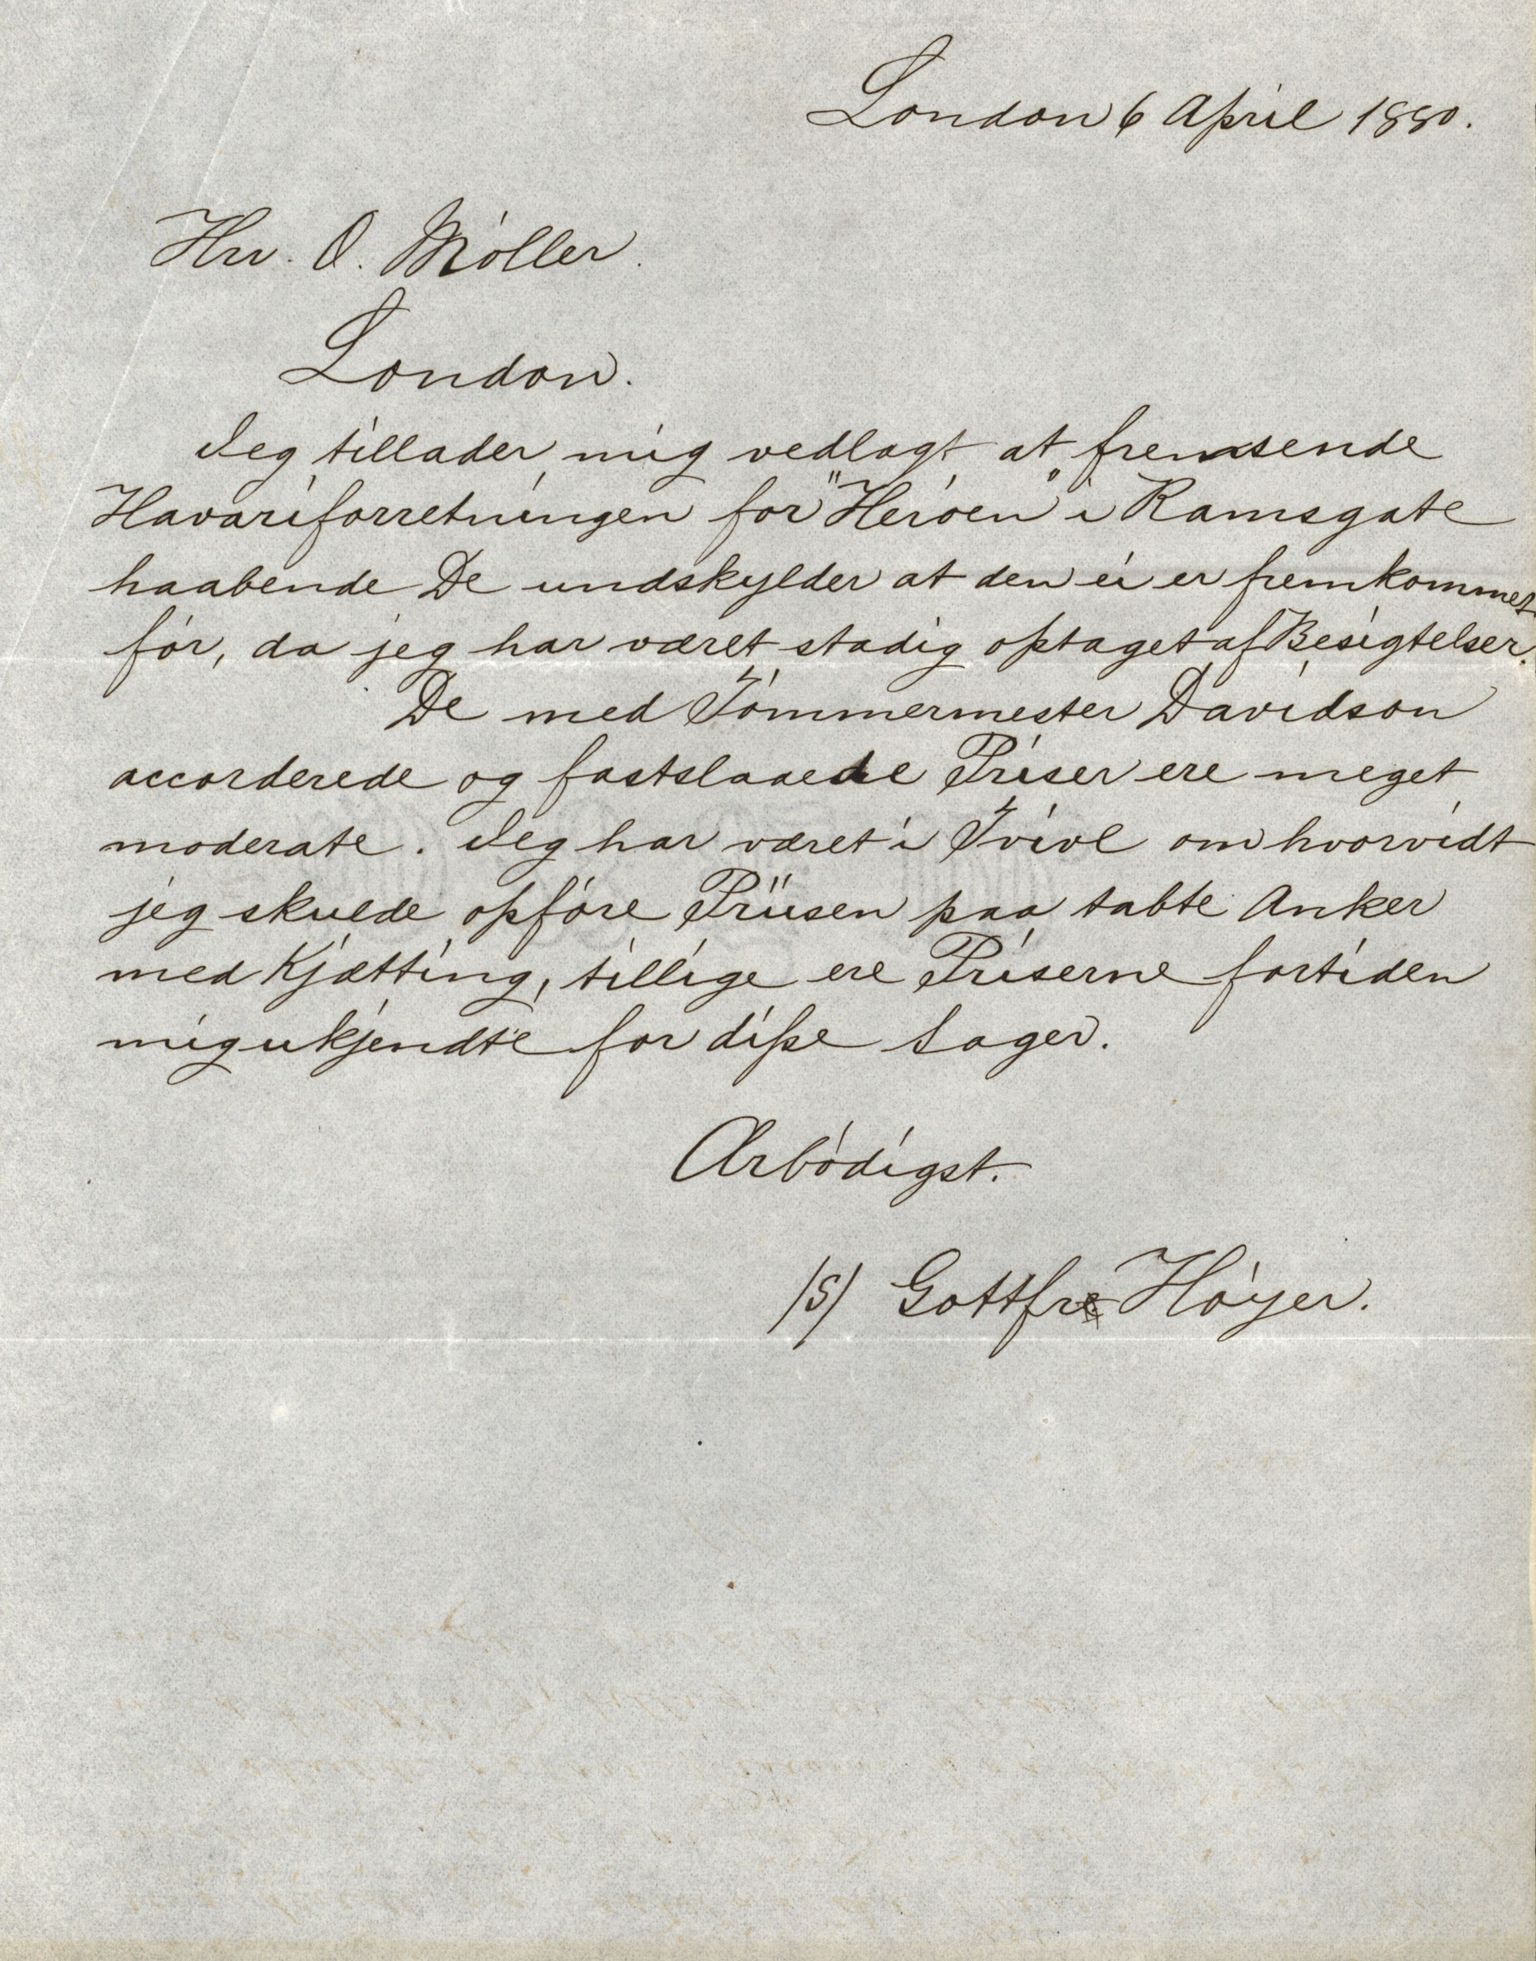 London 6 April 1880.
Hrr. O. Möller.
London.
Jeg tillader mig vedlagt at fremsende
Havariforretningen for "Heroen" i Ramsgate
haabende De undskylder at den ei er fremkommet
før, da jeg har været stadig optaget af Besigtelser.
De med Tömmermester Davidson
accorderede og fastslaaede Priser ere meget
moderate. Jeg har været i Tvivl om hvorvidt
jeg skulde opføre Priisen paa tabte Anker
med Kjætting, tillige ere Priserne fortiden
mig ukjendte for disse Sager.
Ærbødigst.
/S/ Gottfr. Høyer.